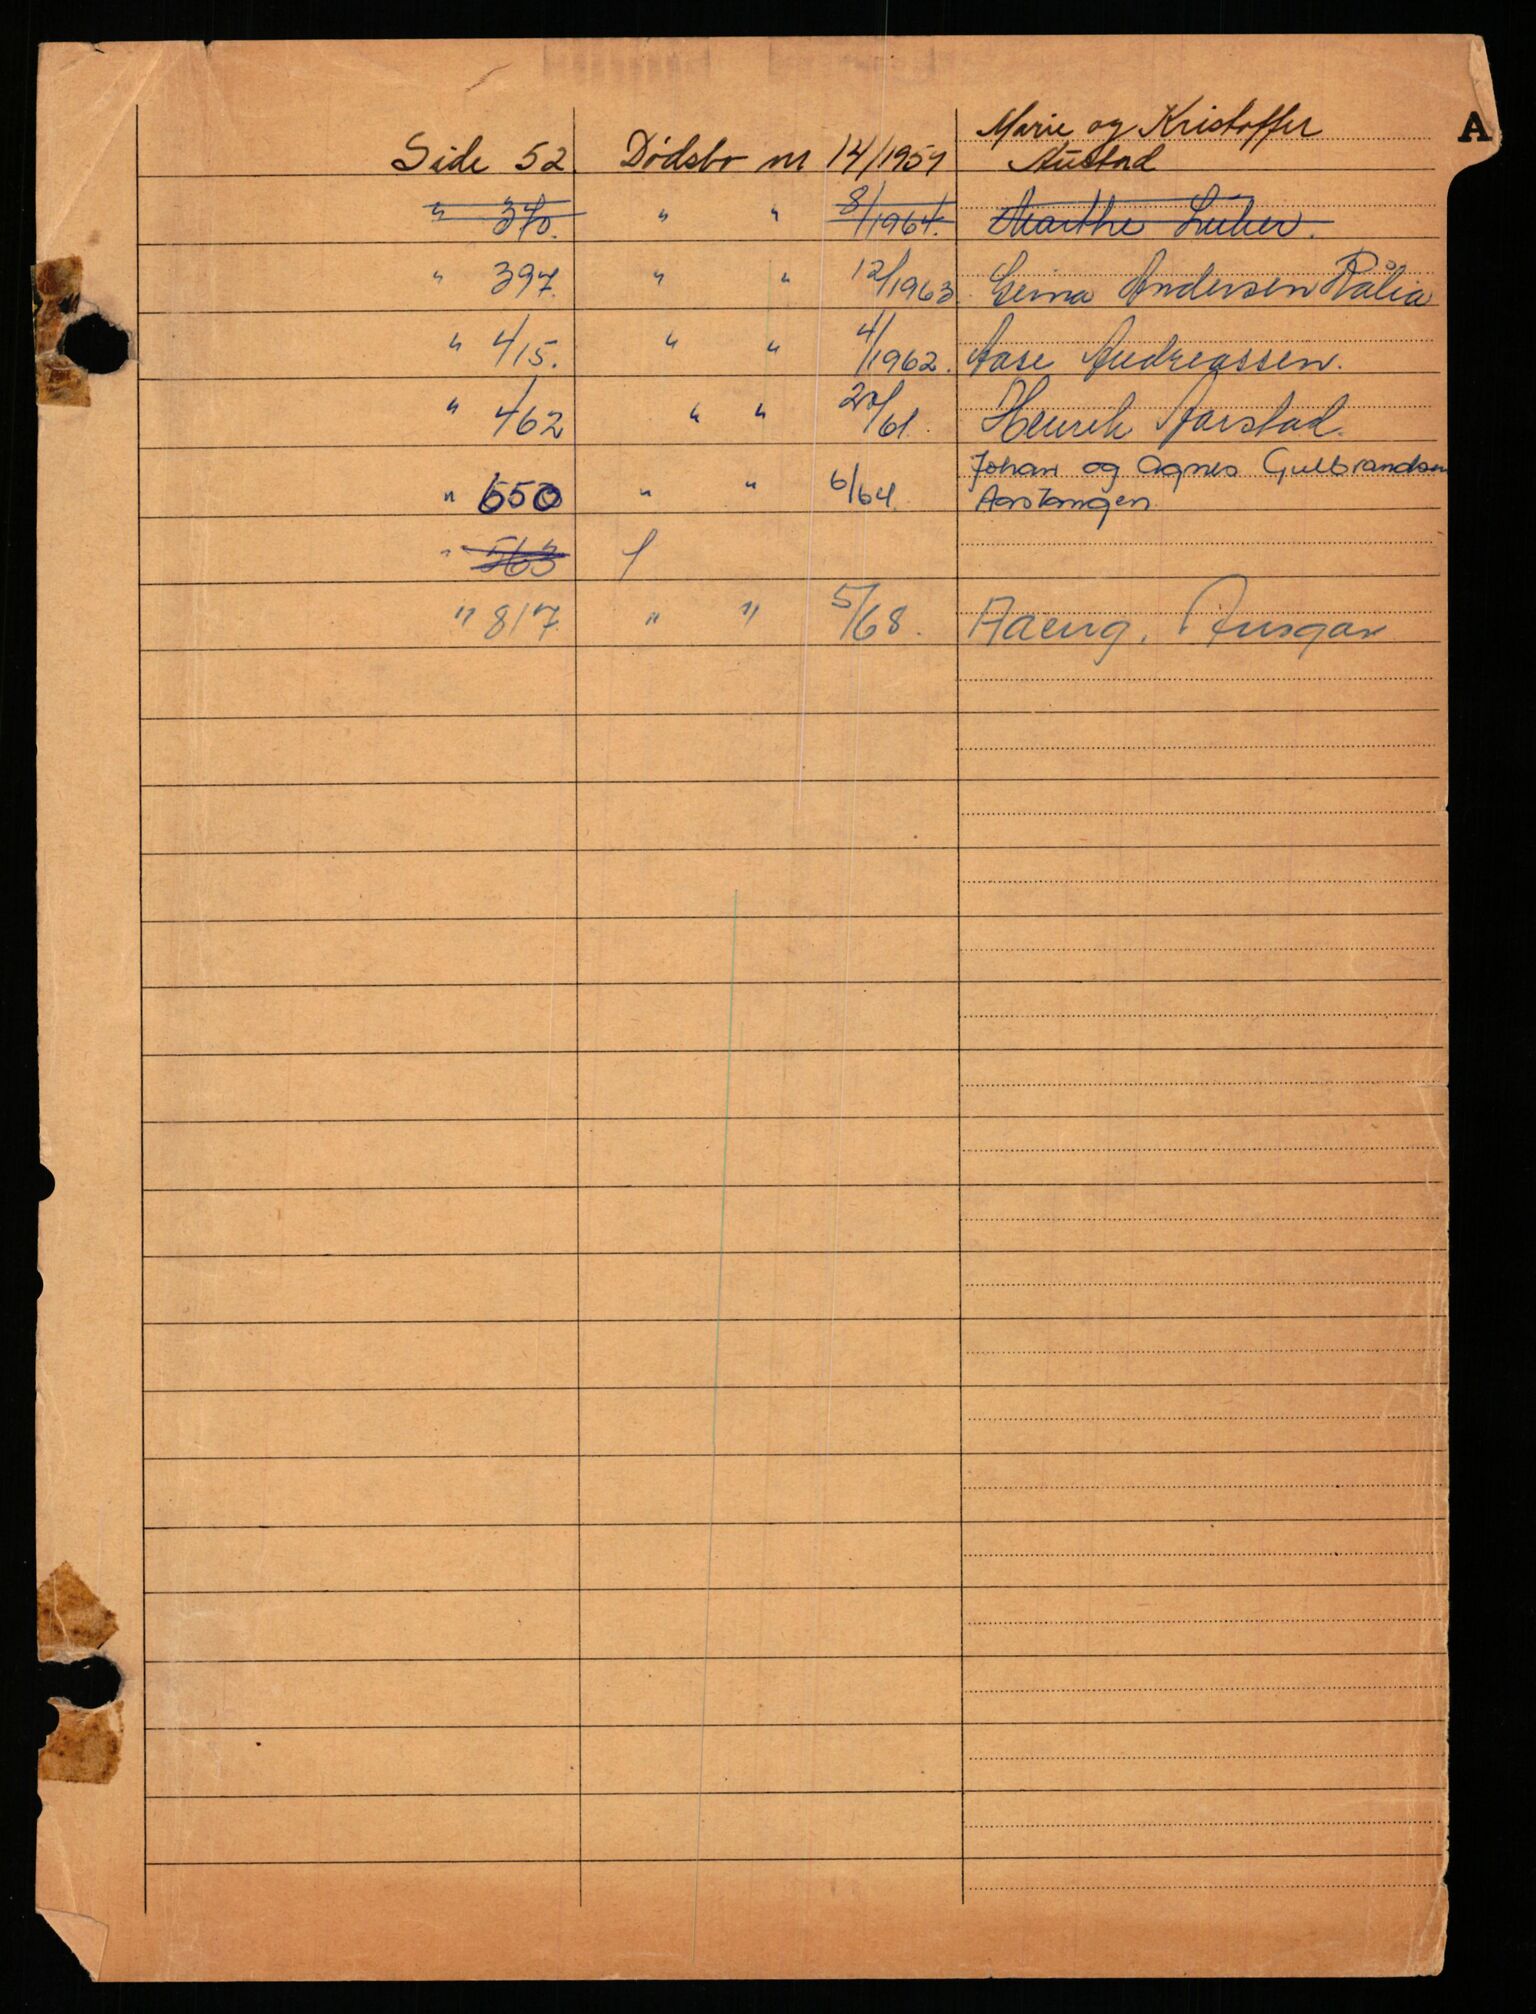 A
Marie og Kristoffer
Side 52. Dødsbo nr 14/1957 Austad
" 370. " " 8/1964. Marthe Luber.
" 397. " " 12/1963. Andersen Rålia
" 415. " " 4/1962. Aase Andreassen.
" 462 " " /61. Henrik Aarstad.
Johan og Agnes Gulbrandsen
" 650 " " 6/64. Aastangen.
" 563
" 817. " " 5/68. Aaeng, Ansgar